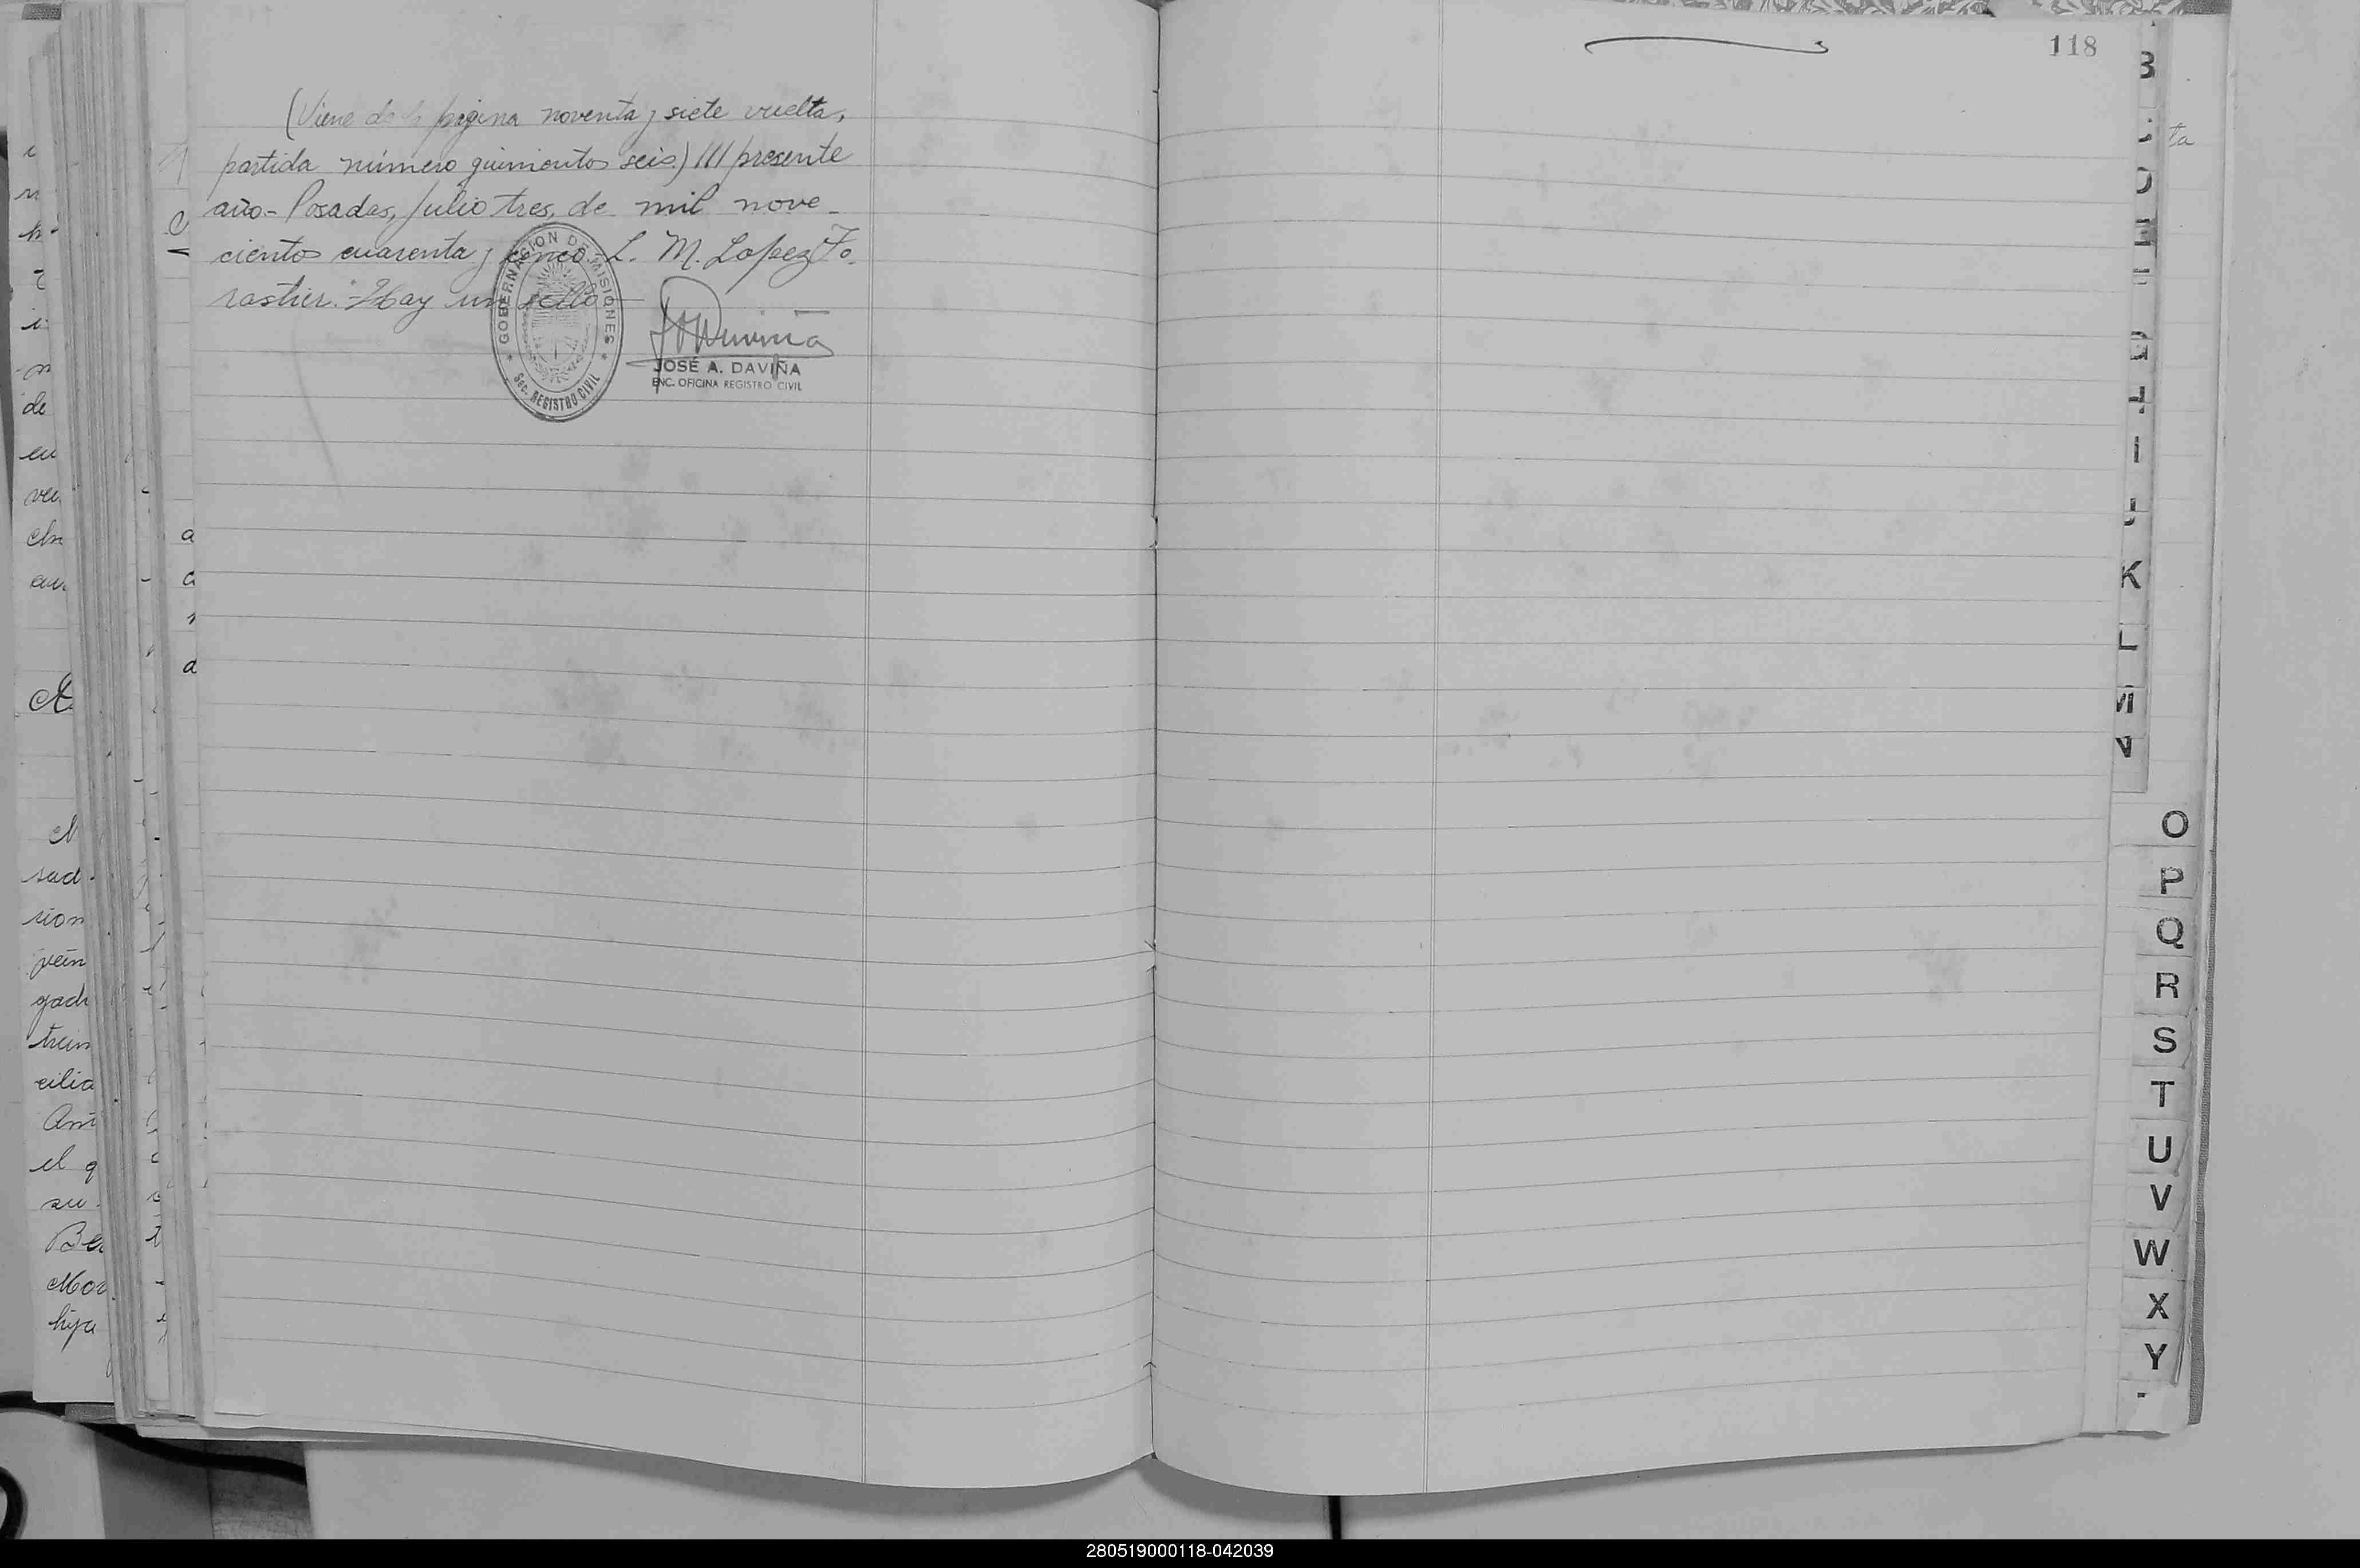 (Viene de la pagina noventa y siete vuelta,
partida número quinientos seis.) /// presente
año.- Posadas, Julio tres, de mil nove-
cientos cuarenta y cinco. L. M. Lopez Fo-
rastier. Hay un sello
GOBERNACION DE MISIONES
Sec. REGISTRO CIVIL
JOSÉ A. DAVIÑA
ENC. OFICINA REGISTRO CIVIL
de
en
A
sad
sion
vein
gadi
trein
cilia
el q
su
Be
Mor
hija
118
ta
B
I
J
K
L
M
N
O
P
Q
R
S
T
U
V
W
X
Y
280519000118-042039